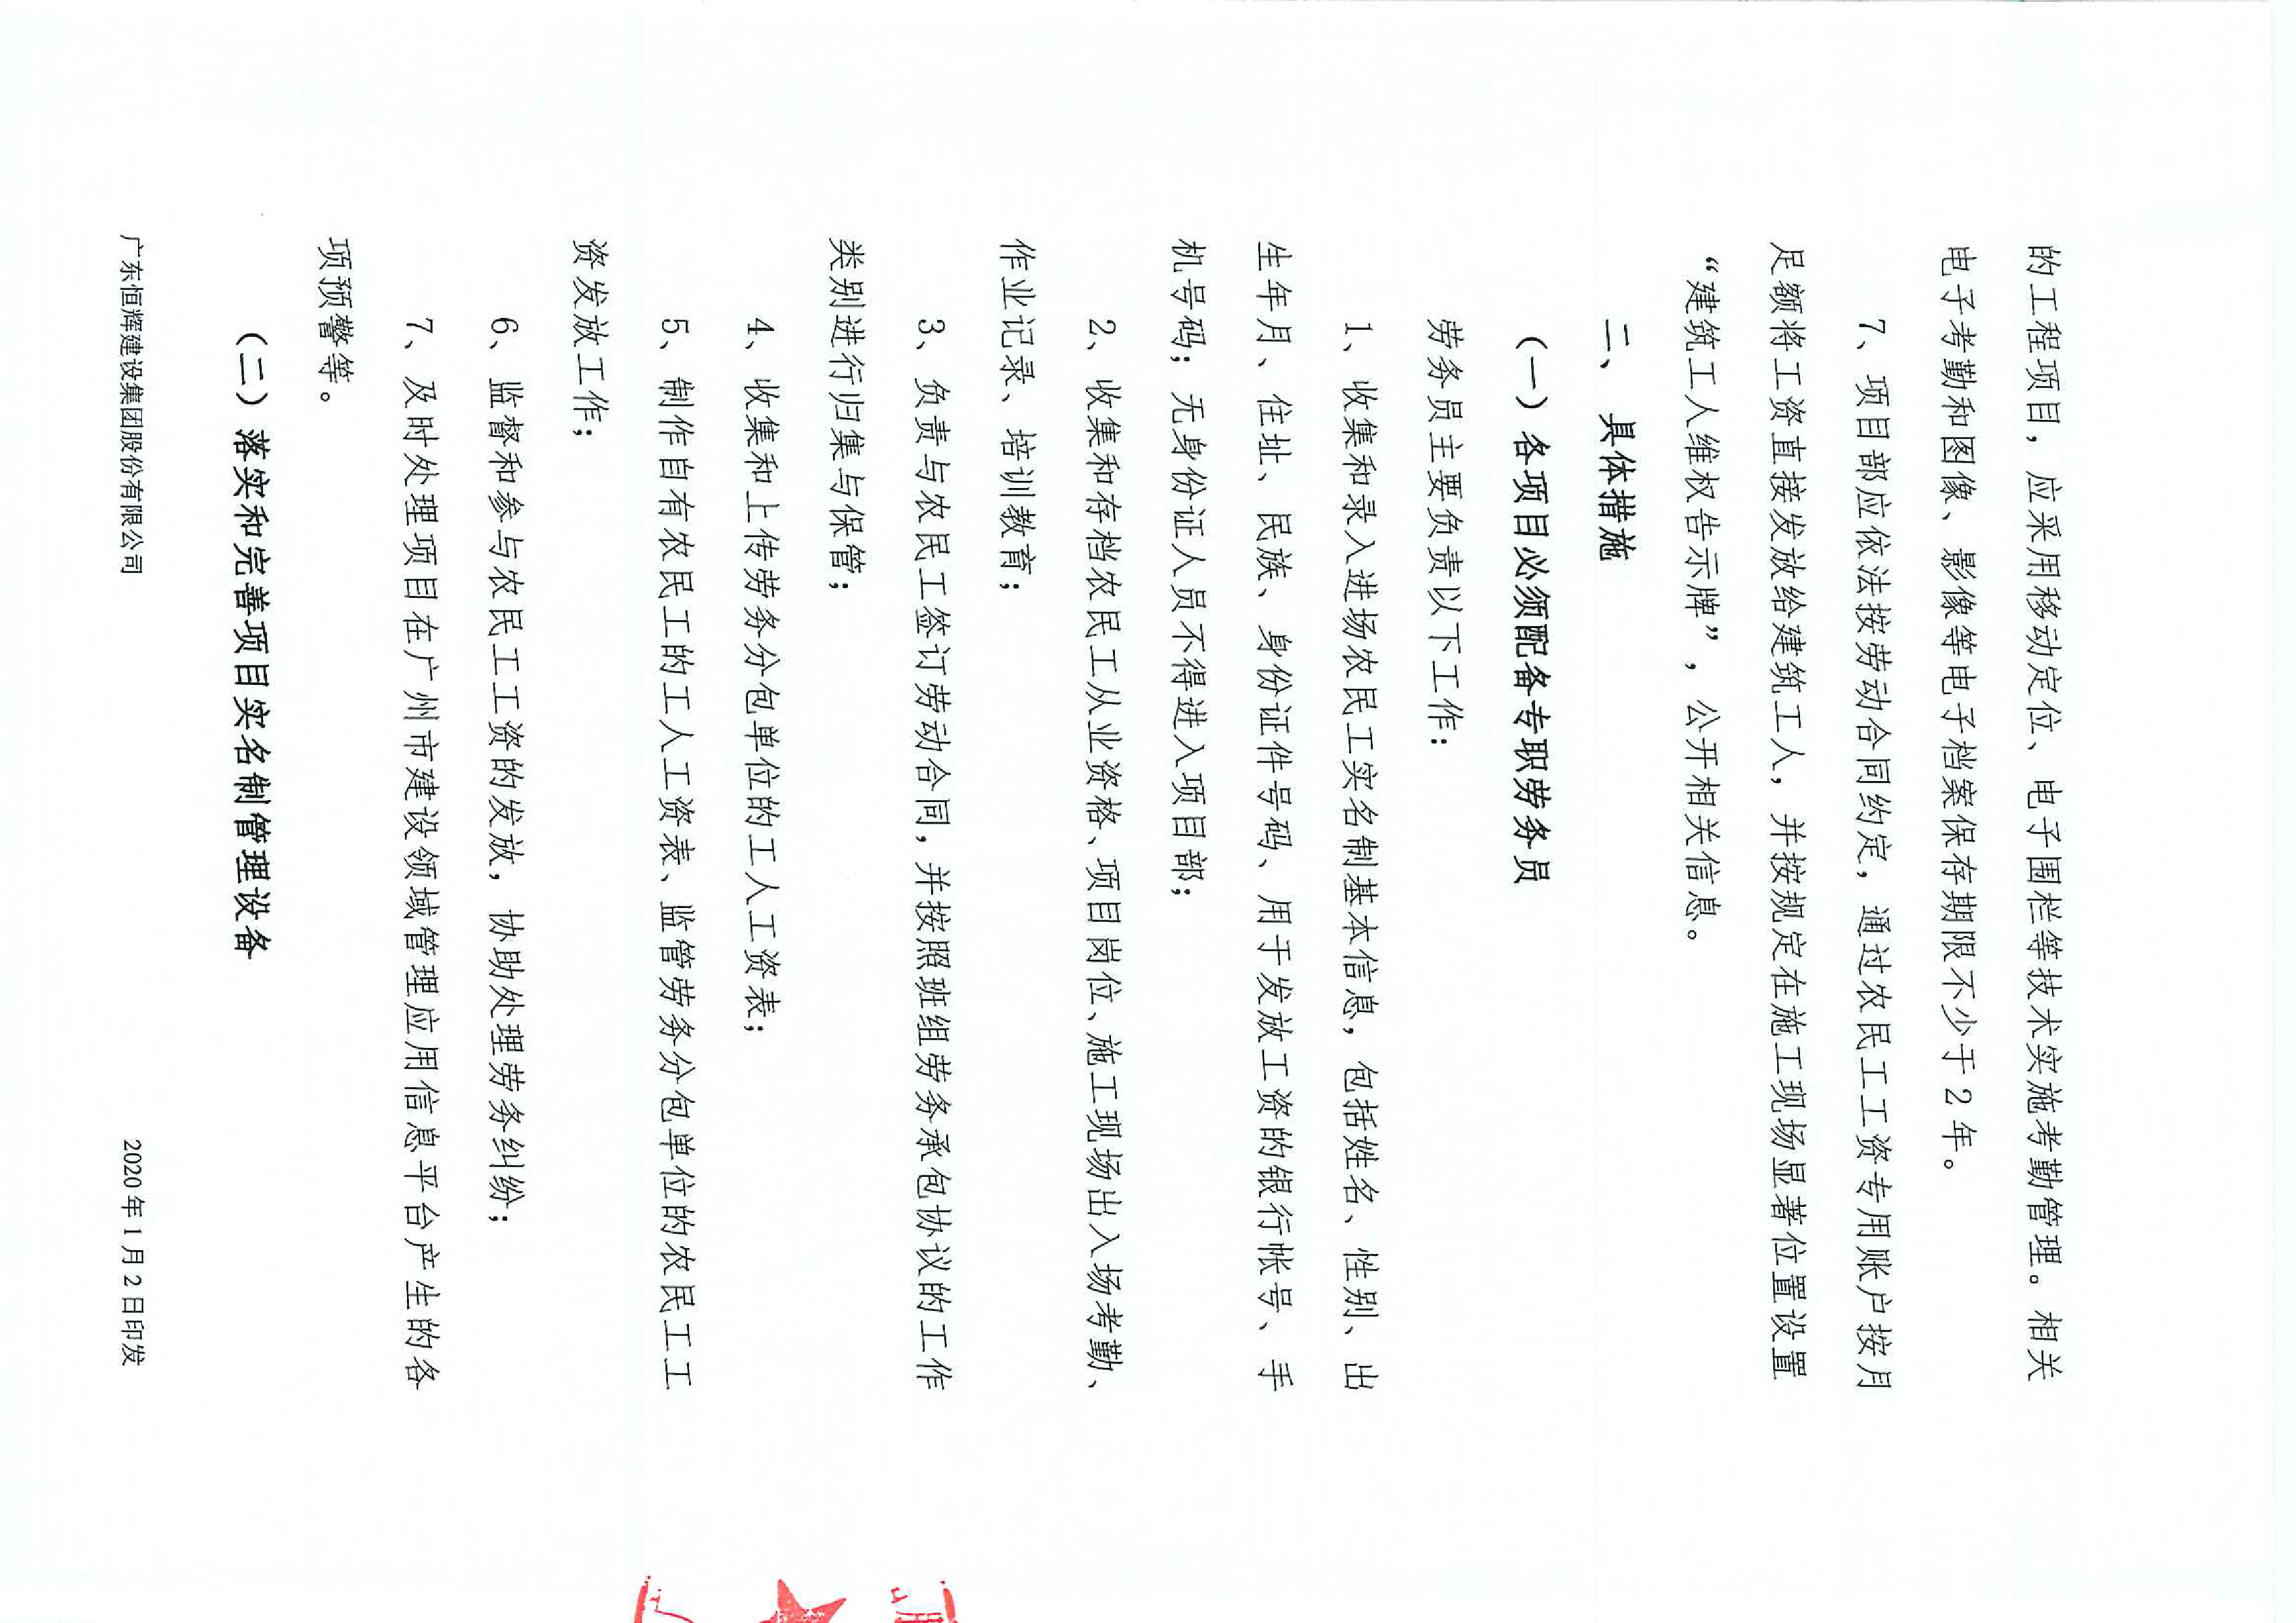 的工程项目，应采用移动定位、电子围栏等技术实施考勤管理。相关
电子考勤和图像、影像等电子档案保存期限不少于2年。
7、项目部应依法按劳动合同约定，通过农民工工资专用账户按月
足额将工资直接发放给建筑工人，并按规定在施工现场显著位置设置
“建筑工人维权告示牌”，公开相关信息。
二、具体措施
（一）各项目必须配备专职劳务员
劳务员主要负责以下工作：
1、收集和录入进场农民工实名制基本信息，包括姓名、性别、出
生年月、住址、民族、身份证件号码、用于发放工资的银行帐号、手
机号码；无身份证人员不得进入项目部；
2、收集和存档农民工从业资格、项目岗位、施工现场出入场考勤、
作业记录、培训教育；
3、负责与农民工签订劳动合同，并按照班组劳务承包协议的工作
类别进行归集与保管；
4、收集和上传劳务分包单位的工人工资表；
5、制作自有农民工的工人工资表、监管劳务分包单位的农民工工
资发放工作；
6、监督和参与农民工工资的发放，协助处理劳务纠纷；
7、及时处理项目在广州市建设领域管理应用信息平台产生的各
项预警等。
（二）落实和完善项目实名制管理设备
广东恒辉建设集团股份有限公司 2020年1月2日印发